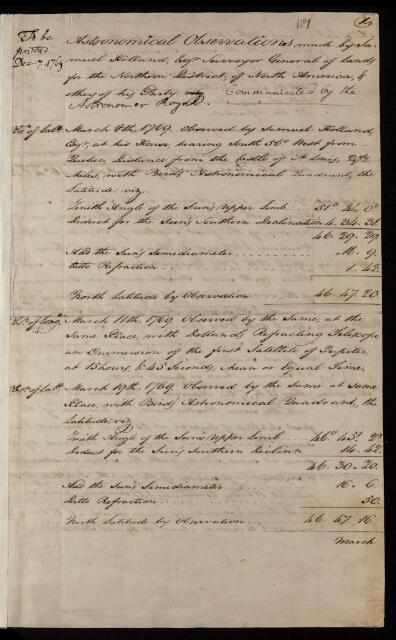 To be
printed
Dec. 7. 1769
19
Astronomical Observations, made by Sa-
muel Holland, Esqr. Surveyor General of Lands
for the Northern District, of North America, &
others of his Party. Communicated by the
Astronomer Royal.
March 8th, 1769. Observed by Samuel Holland,
Esqr., at his House, bearing South 56° West from
Quebec, Distance from the Castle of St. Louis,
Miles, with Bird's Astronomical Quadrant, the
Latitude: viz.
Zenith Angle of the Sun's Upper Limb 51° 4' 0"
Deduct for the Sun's Southern Declination 4. 34. 31
46. 29. 29
Add the Sun's Semidiameter 16. 9
Ditto Refraction 1. 42
North Latitude by Observation 46. 47. 20
March 11th, 1769. Observed by the Same, at the
Same Place, with Dollond's Refracting Telescope
an Emmersion of the first Satellite of Jupiter,
at 15 hours, & 45 Seconds, Mean or Equal Time.
March 19th, 1769. Observed by the Same at Same
Place, with Bird's Astronomical Quadrant, the
Latitude: viz.
Zenith Angle of the Sun's Upper Limb 46° 45'
Deduct for the Sun's Southern Declinn. 14. 42
46. 30. 20
Add the Sun's Semidiameter 16. 6
Ditto Refraction 50
North Latitude by Observation 46. 47. 16
March